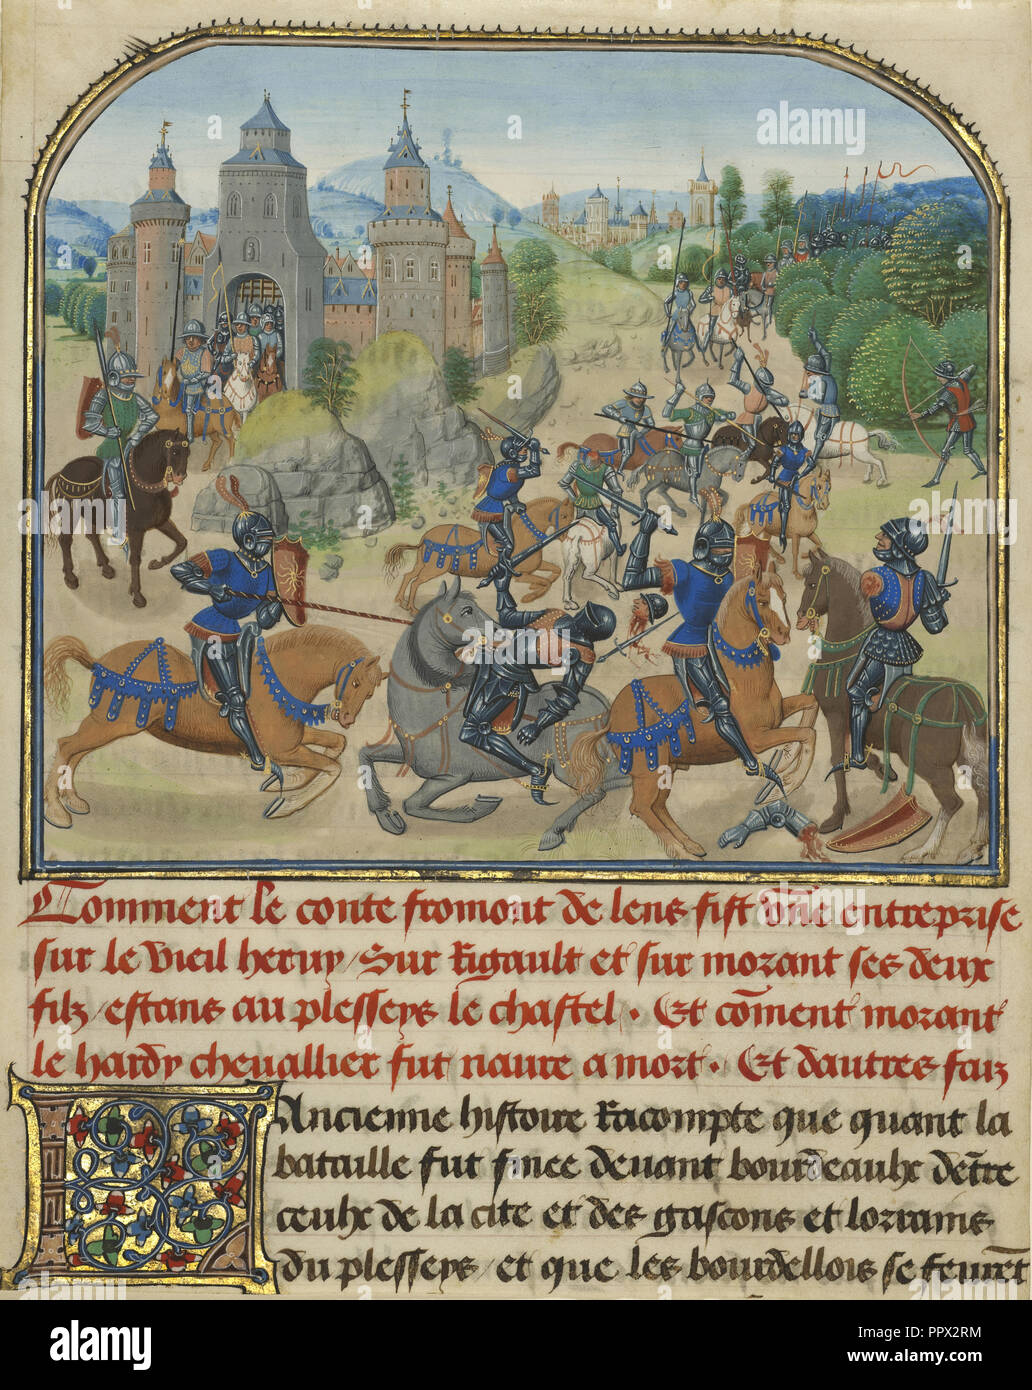 Comment le conte fromont de lens fist vne entreprise
sur le vieil heruy / Sur Rigault et sur morant ses deux
filz / estans au plesseys le chastel · Et cõment morant
le hardy cheuallier fut naure a mort · Et dautres faiz
Ancienne histoire Racompte que quant la
bataille fut finee deuant bourdeaulx dẽtre
ceulx de la cite et des gascons et lorrains
du plesseys / et que les bourdellois se feurẽt
alamy
alamy
alamy
Image ID: PPX2RM
www.alamy.com